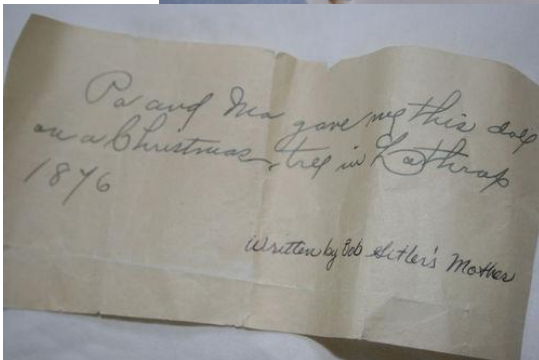 Pa and Ma gave me this doll
on a Christmas tree in Lathrop
1876
Written by Bob Sitler's Mother